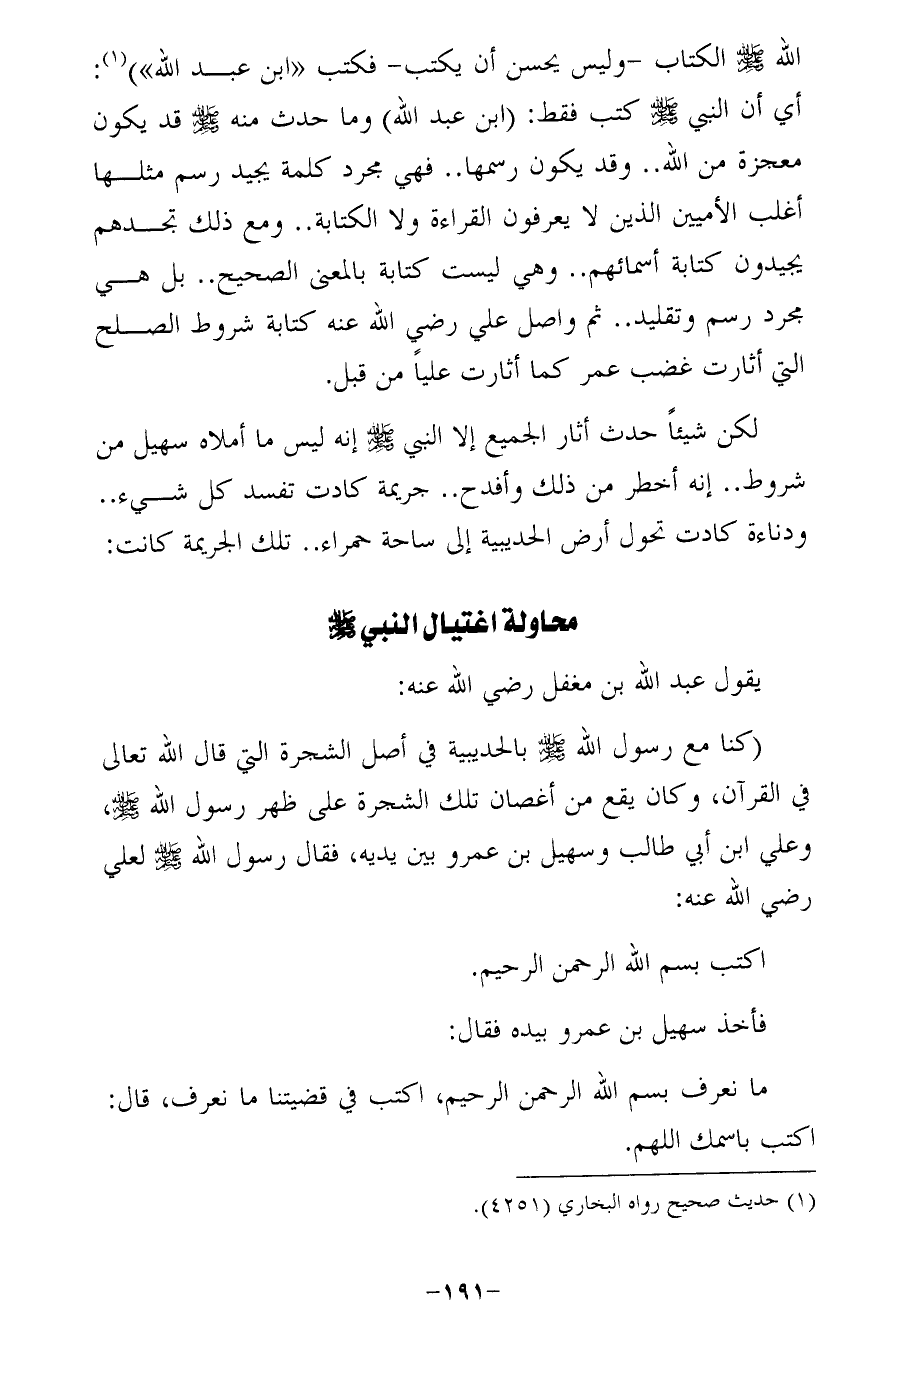 الله ﷺ الكتاب -وليس يحسن أن يكتب- فكتب «ابن عبد الله»)(١):
أي أن النبي ﷺ كتب فقط: (ابن عبد الله) وما حدث منه ﷺ قد يكون
معجزة من الله.. وقد يكون رسمها.. فهي مجرد كلمة يجيد رسم مثلها
أغلب الأميين الذين لا يعرفون القراءة ولا الكتابة.. ومع ذلك تجدهم
يجيدون كتابة أسمائهم.. وهي ليست كتابة بالمعنى الصحيح.. بل هي
مجرد رسم وتقليد.. ثم واصل علي رضي الله عنه كتابة شروط الصلح
التي أثارت غضب عمر كما أثارت علياً من قبل.
لكن شيئاً حدث أثار الجميع إلا النبي ﷺ إنه ليس ما أملاه سهيل من
شروط.. إنه أخطر من ذلك وأفدح.. جريمة كادت تفسد كل شيء..
ودناءة كادت تحول أرض الحديبية إلى ساحة حمراء.. تلك الجريمة كانت:
محاولة اغتيال النبي ﷺ
يقول عبد الله بن مغفل رضي الله عنه:
(كنا مع رسول الله ﷺ بالحديبية في أصل الشجرة التي قال الله تعالى
في القرآن، وكان يقع من أغصان تلك الشجرة على ظهر رسول الله ﷺ،
وعلي ابن أبي طالب وسهيل بن عمرو بين يديه، فقال رسول الله ﷺ لعلي
رضي الله عنه:
اكتب بسم الله الرحمن الرحيم.
فأخذ سهيل بن عمرو بيده فقال:
ما نعرف بسم الله الرحمن الرحيم، اكتب في قضيتنا ما نعرف، قال:
اكتب باسمك اللهم.
(١) حديث صحيح رواه البخاري (٤٢٥١).
-١٩١-